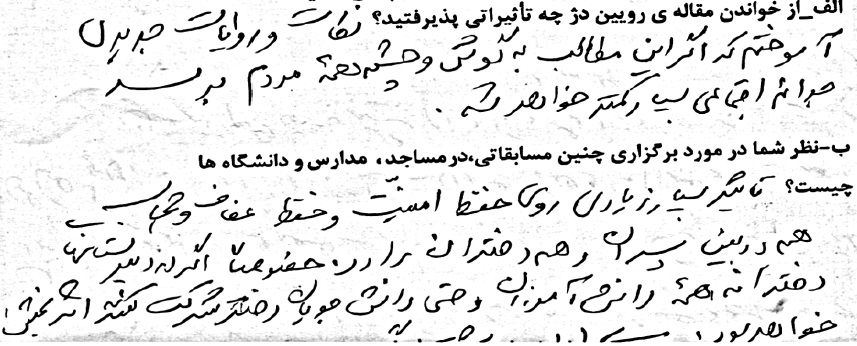 الف_از خواندن مقاله ی رویین دژ چه تأثیراتی پذیرفتید؟ نکات و روایات جدیدی
آموختم که اگر این مطالب به گوش و چشم همۀ مردم برسد
جرائم اجتماعی بسیار کمتر خواهد شد.
ب-نظر شما در مورد برگزاری چنین مسابقاتی،در مساجد، مدارس و دانشگاه ها
چیست؟ تأثیر بسیار زیادی روی حفظ امنیّت و حفظ عفاف و حجاب
هم در بین پسران و هم دختران دارد. خصوصاً اگر در دبیرستانها
دخترانه همۀ دانش آموزان و حتی دانش جویان دختر شرکت کنند اثربخش
خواهد بود